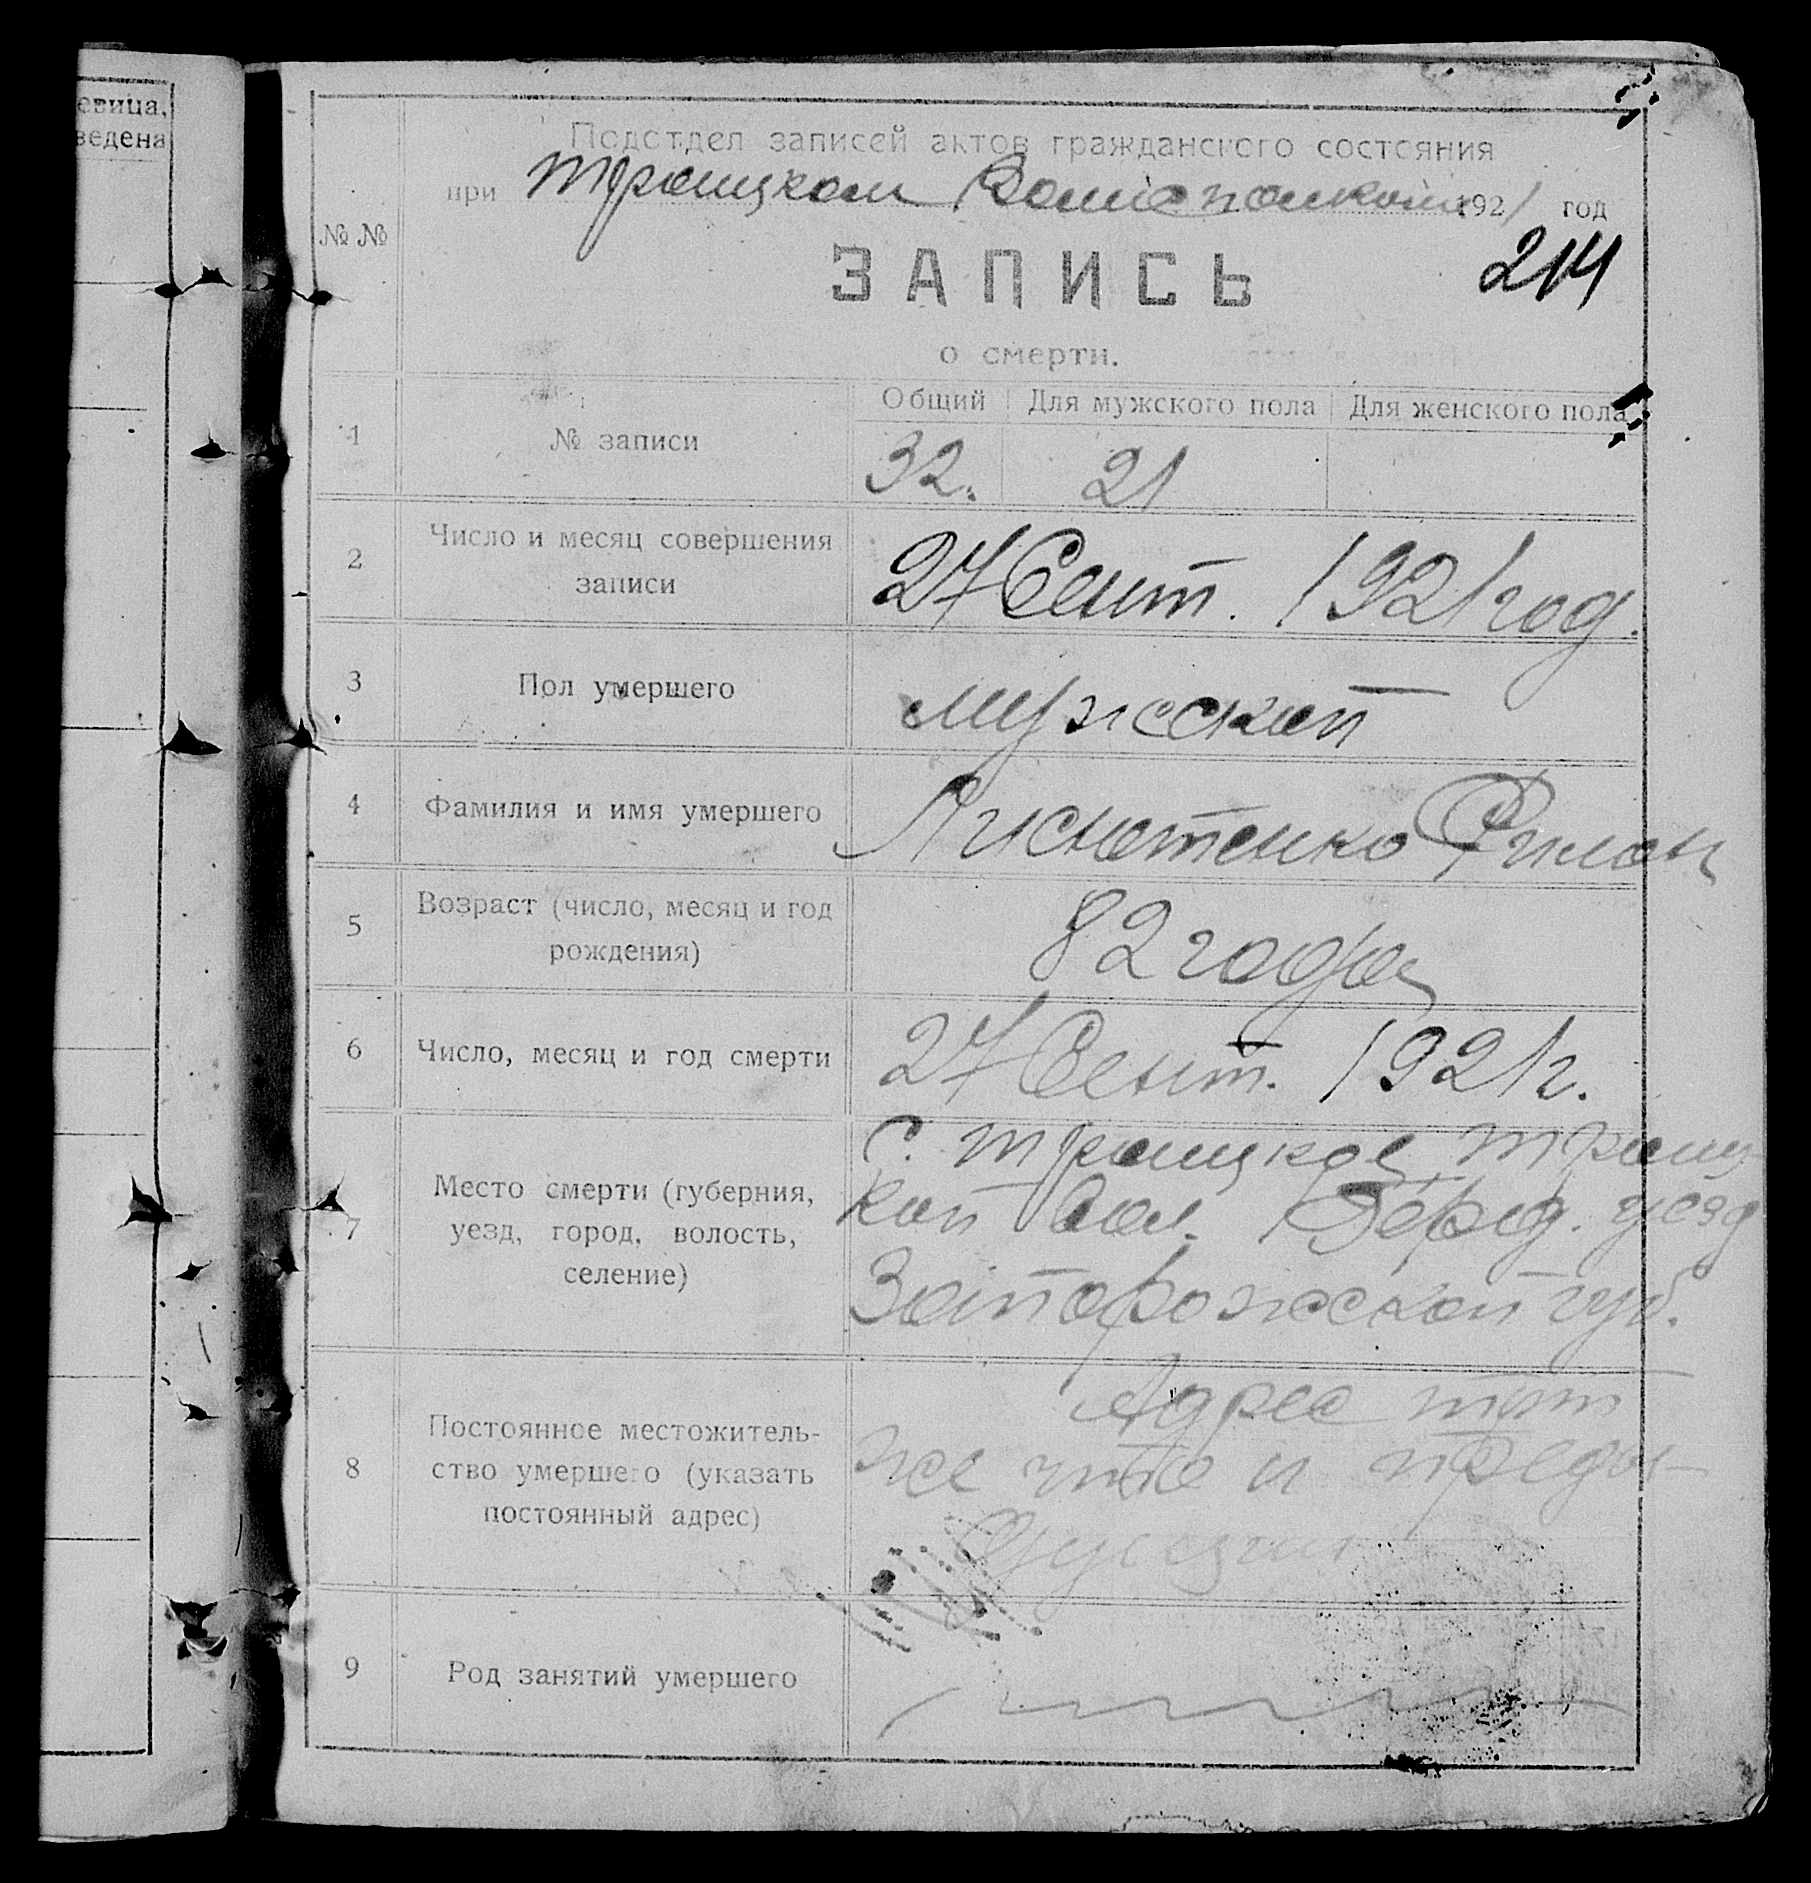 евица,
ведена
Подотдел записей актов гражданского состояния
при Троицком Волисполкоме 1921 год
№ №
ЗАПИСЬ
214
о смерти.
Общий Для мужского пола Для женского пола
1 № записи 32. 21
2 Число и месяц совершения
записи
27 Сент. 1921 год.
3 Пол умершего мужской
4 Фамилия и имя умершего Филон
5 Возраст (число, месяц и год
рождения)
82 года
6 Число, месяц и год смерти 27 Сент. 1921 г.
7 Место смерти (губерния,
уезд, город, волость,
селение)
С. Троицкое Троиц
кой Вол. Берд. уезд
Запорожской губ.
8 Постоянное местожитель-
ство умершего (указать
постоянный адрес)
Адрес тот
же что и преды-
дущий
9 Род занятий умершего